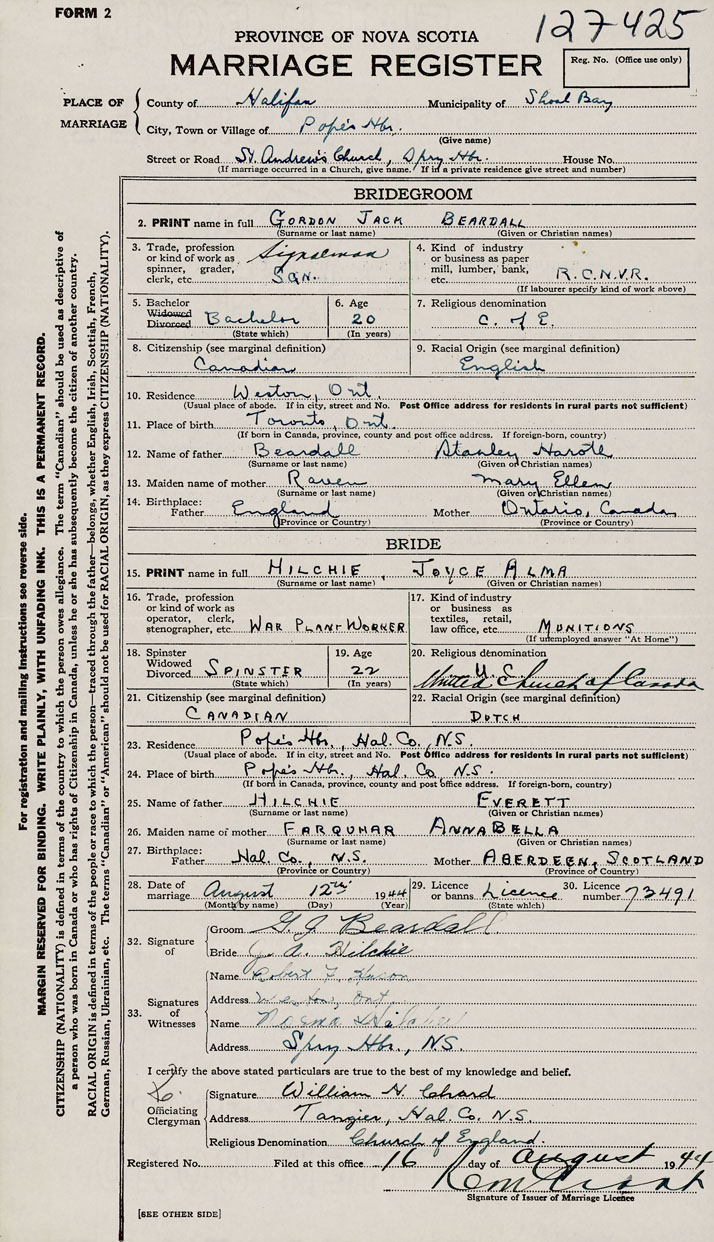 FORM 2
127425
PROVINCE OF NOVA SCOTIA
MARRIAGE REGISTER
Reg. No. (Office use only)
PLACE OF MARRIAGE
County of Halifax Municipality of Shoal Bay
City, Town or Village of Pope's Hbr.
(Give name)
Street or Road St. Andrew's Church, Spry Hbr. House No.
(If marriage occurred in a Church, give name. If in a private residence give street and number)
BRIDEGROOM
2. PRINT name in full GORDON JACK BEARDALL
(Surname or last name) (Given or Christian names)
3. Trade, profession or kind of work as spinner, grader, clerk, etc. Signalman
4. Kind of industry or business as paper mill, lumber, bank, etc. R.C.N.V.R.
(If labourer specify kind of work above)
5. Bachelor Widowed Divorced Bachelor
(State which)
6. Age 20
(In years)
7. Religious denomination C. of E.
8. Citizenship (see marginal definition) Canadian
9. Racial Origin (see marginal definition) English
10. Residence Weston, Ont.
(Usual place of abode. If in city, street and No. Post Office address for residents in rural parts not sufficient)
11. Place of birth Toronto, Ont.
(If born in Canada, province, county and post office address. If foreign-born, country)
12. Name of father Beardall Stanley
(Surname or last name) (Given or Christian names)
13. Maiden name of mother Raven Mary Ellen
(Surname or last name) (Given or Christian names)
14. Birthplace: Father England Mother Ontario, Canada
(Province or Country) (Province or Country)
BRIDE
15. PRINT name in full HILCHIE, JOYCE ALMA
(Surname or last name) (Given or Christian names)
16. Trade, profession or kind of work as operator, clerk, stenographer, etc. WAR PLANT WORKER
17. Kind of industry or business as textiles, retail, law office, etc. MUNITIONS
(If unemployed answer "At Home")
18. Spinster Widowed Divorced SPINSTER
(State which)
19. Age 22
(In years)
20. Religious denomination U.C.
United Church of Canada
21. Citizenship (see marginal definition) CANADIAN
22. Racial Origin (see marginal definition) DUTCH
23. Residence Pope's Hbr., Hal. Co., N.S.
(Usual place of abode. If in city, street and No. Post Office address for residents in rural parts not sufficient)
24. Place of birth Pope's Hbr., Hal. Co., N.S.
(If born in Canada, province, county and post office address. If foreign-born, country)
25. Name of father HILCHIE EVERETT
(Surname or last name) (Given or Christian names)
26. Maiden name of mother FARQUHAR ANNABELLA
(Surname or last name) (Given or Christian names)
27. Birthplace: Father Hal. Co., N.S. Mother ABERDEEN, SCOTLAND
(Province or Country) (Province or Country)
28. Date of marriage August 12th 1944
(Month by name) (Day) (Year)
29. Licence or banns Licence
(State which)
30. Licence number 73491
32. Signature of
Groom G. J. Beardall
Bride J. A. Hilchie
33. Signatures of Witnesses
Name Robert F.
Address Weston, Ont.
Name Norma
Address Spry Hbr., N.S.
I certify the above stated particulars are true to the best of my knowledge and belief.
Officiating Clergyman
Signature William H. Chard
Address Tangier, Hal. Co. N.S.
Religious Denomination Church of England.
Registered No. Filed at this office 16 day of August 1944
Signature of Issuer of Marriage Licence
[SEE OTHER SIDE]
For registration and mailing instructions see reverse side.
MARGIN RESERVED FOR BINDING. WRITE PLAINLY, WITH UNFADING INK. THIS IS A PERMANENT RECORD.
CITIZENSHIP (NATIONALITY) is defined in terms of the country to which the person owes allegiance. The term "Canadian" should be used as descriptive of
a person who was born in Canada or who has rights of Citizenship in Canada, unless he or she has subsequently become the citizen of another country.
RACIAL ORIGIN is defined in terms of the people or race to which the person—traced through the father—belongs, whether English, Irish, Scottish, French,
German, Russian, Ukrainian, etc. The terms "Canadian" or "American" should not be used for RACIAL ORIGIN, as they express CITIZENSHIP (NATIONALITY).